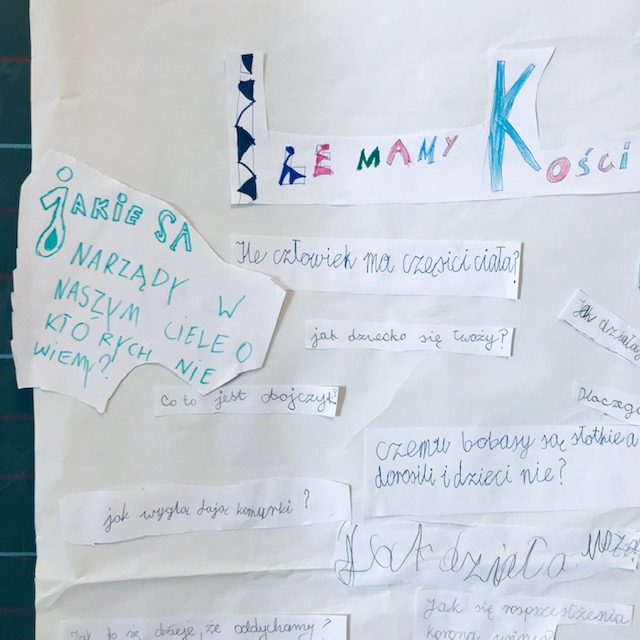 ILE MAMY KOŚCI
JAKIE SA
NARZĄDY W
NASZYM CIELE O
KTÓRYCH NIE
WIEMY?
Ile człowiek ma części ciała?
jak dziecko się twoży?
Co to jest
Dlaczego
czemu bobasy są słotkie a
dorośli i dzieci nie?
jak wygla dają komurki?
Jak działa mózg
Jak to się dzieje, że oddychamy?
Jak się rozprzestrzenia
korona